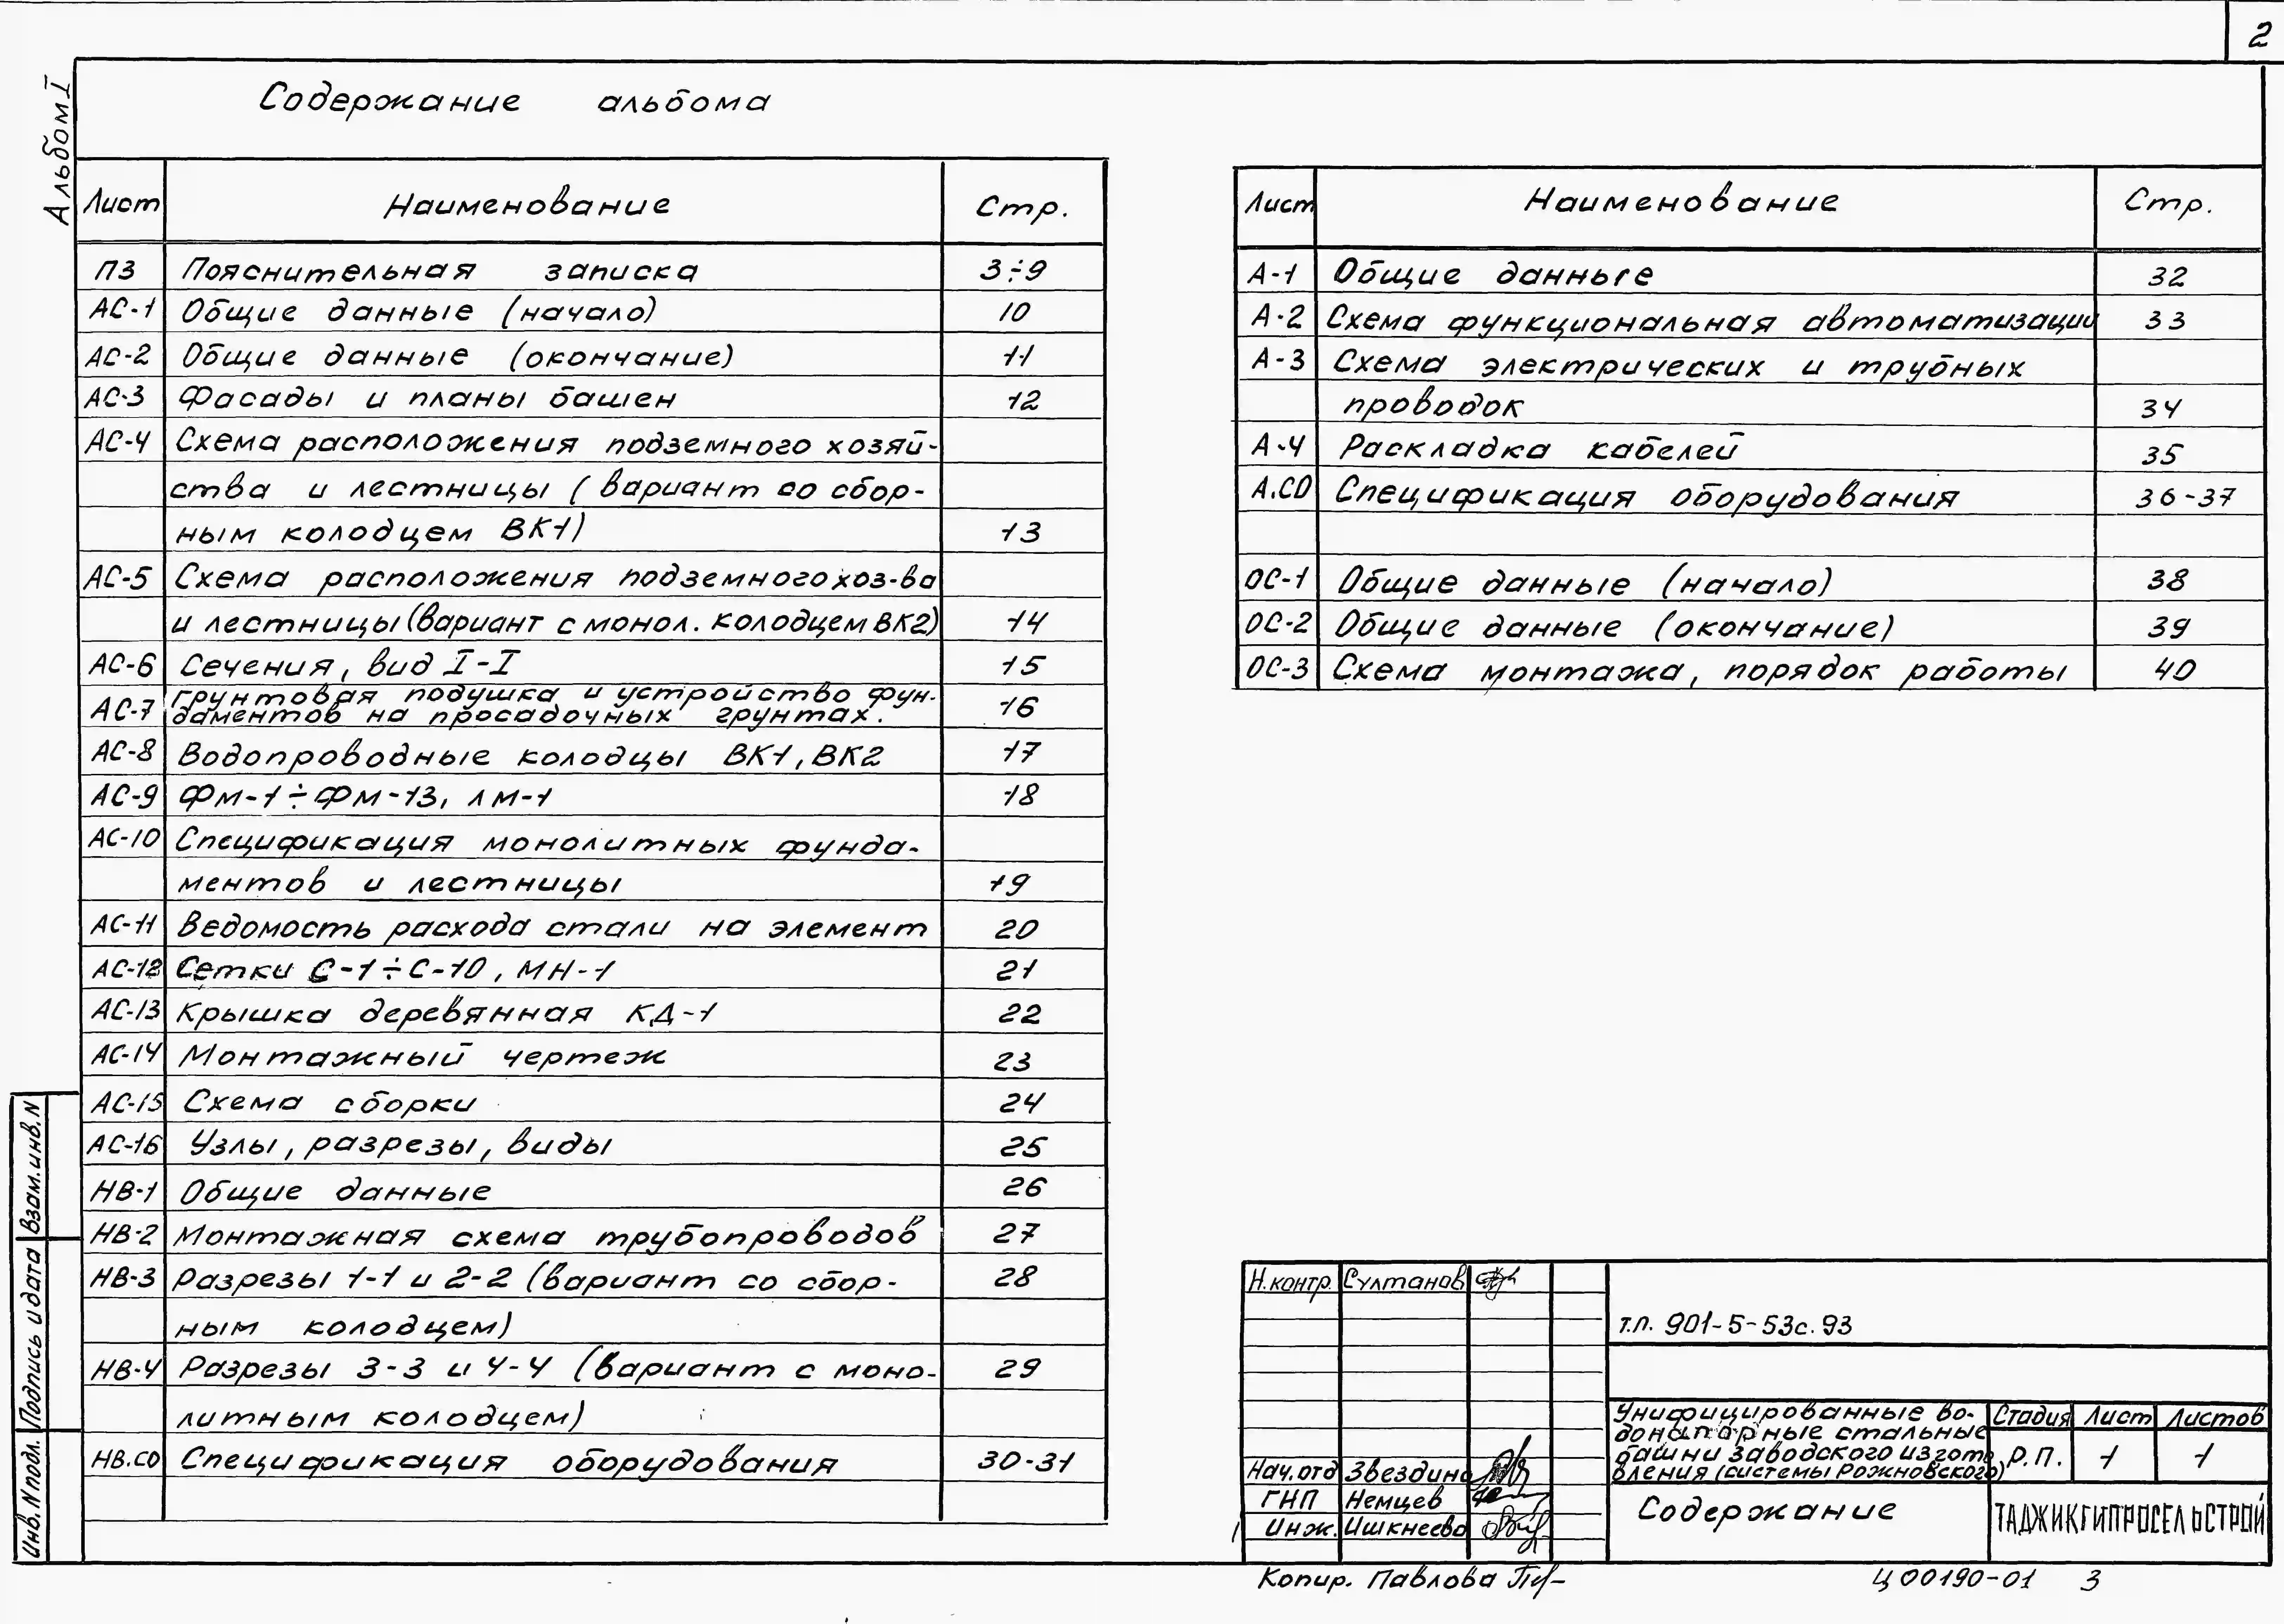 2
Альбом I
Содержание альбома
Лист Наименование Стр.
ПЗ Пояснительная записка 3÷9
АС-1 Общие данные (начало) 10
АС-2 Общие данные (окончание) 11
АС-3 Фасады и планы башен 12
АС-4 Схема расположения подземного хозяй-
ства и лестницы (вариант со сбор-
ным колодцем ВК1) 13
АС-5 Схема расположения подземного хоз-ва
и лестницы (вариант с монол. колодцем ВК2) 14
АС-6 Сечения, вид I-I 15
АС-7 Грунтовая подушка и устройство фун-
даментов на просадочных грунтах. 16
АС-8 Водопроводные колодцы ВК1, ВК2 17
АС-9 ФМ-1÷ФМ-13, ЛМ-1 18
АС-10 Спецификация монолитных фунда-
ментов и лестницы 19
АС-11 Ведомость расхода стали на элемент 20
АС-12 Сетки С-1÷С-10, МН-1 21
АС-13 Крышка деревянная КД-1 22
АС-14 Монтажный чертеж 23
АС-15 Схема сборки 24
АС-16 Узлы, разрезы, виды 25
НВ-1 Общие данные 26
НВ-2 Монтажная схема трубопроводов 27
НВ-3 Разрезы 1-1 и 2-2 (вариант со сбор- 28
ным колодцем)
НВ-4 Разрезы 3-3 и 4-4 (вариант с моно- 29
литным колодцем)
НВ.СО Спецификация оборудования 30-31
Лист Наименование Стр.
А-1 Общие данные 32
А-2 Схема функциональная автоматизации 33
А-3 Схема электрических и трубных
проводок 34
А-4 Раскладка кабелей 35
А.СО Спецификация оборудования 36-37
ОС-1 Общие данные (начало) 38
ОС-2 Общие данные (окончание) 39
ОС-3 Схема монтажа, порядок работы 40
Взам.инв.N
Подпись и дата
Инв.N подл.
Н.контр. Султанов
т.п. 901-5-53с.93
Унифицированные во-
донапорные стальные
башни заводского изгото
вления (системы Рожновского)
Стадия Лист Листов
Р.П. 1 1
Нач.отд Звездина
ГНП Немцев
Инж. Ишкнеева
Содержание
ТАДЖИКГИПРОСЕЛЬСТРОЙ
Копир. Павлова
Ц00190-01 3